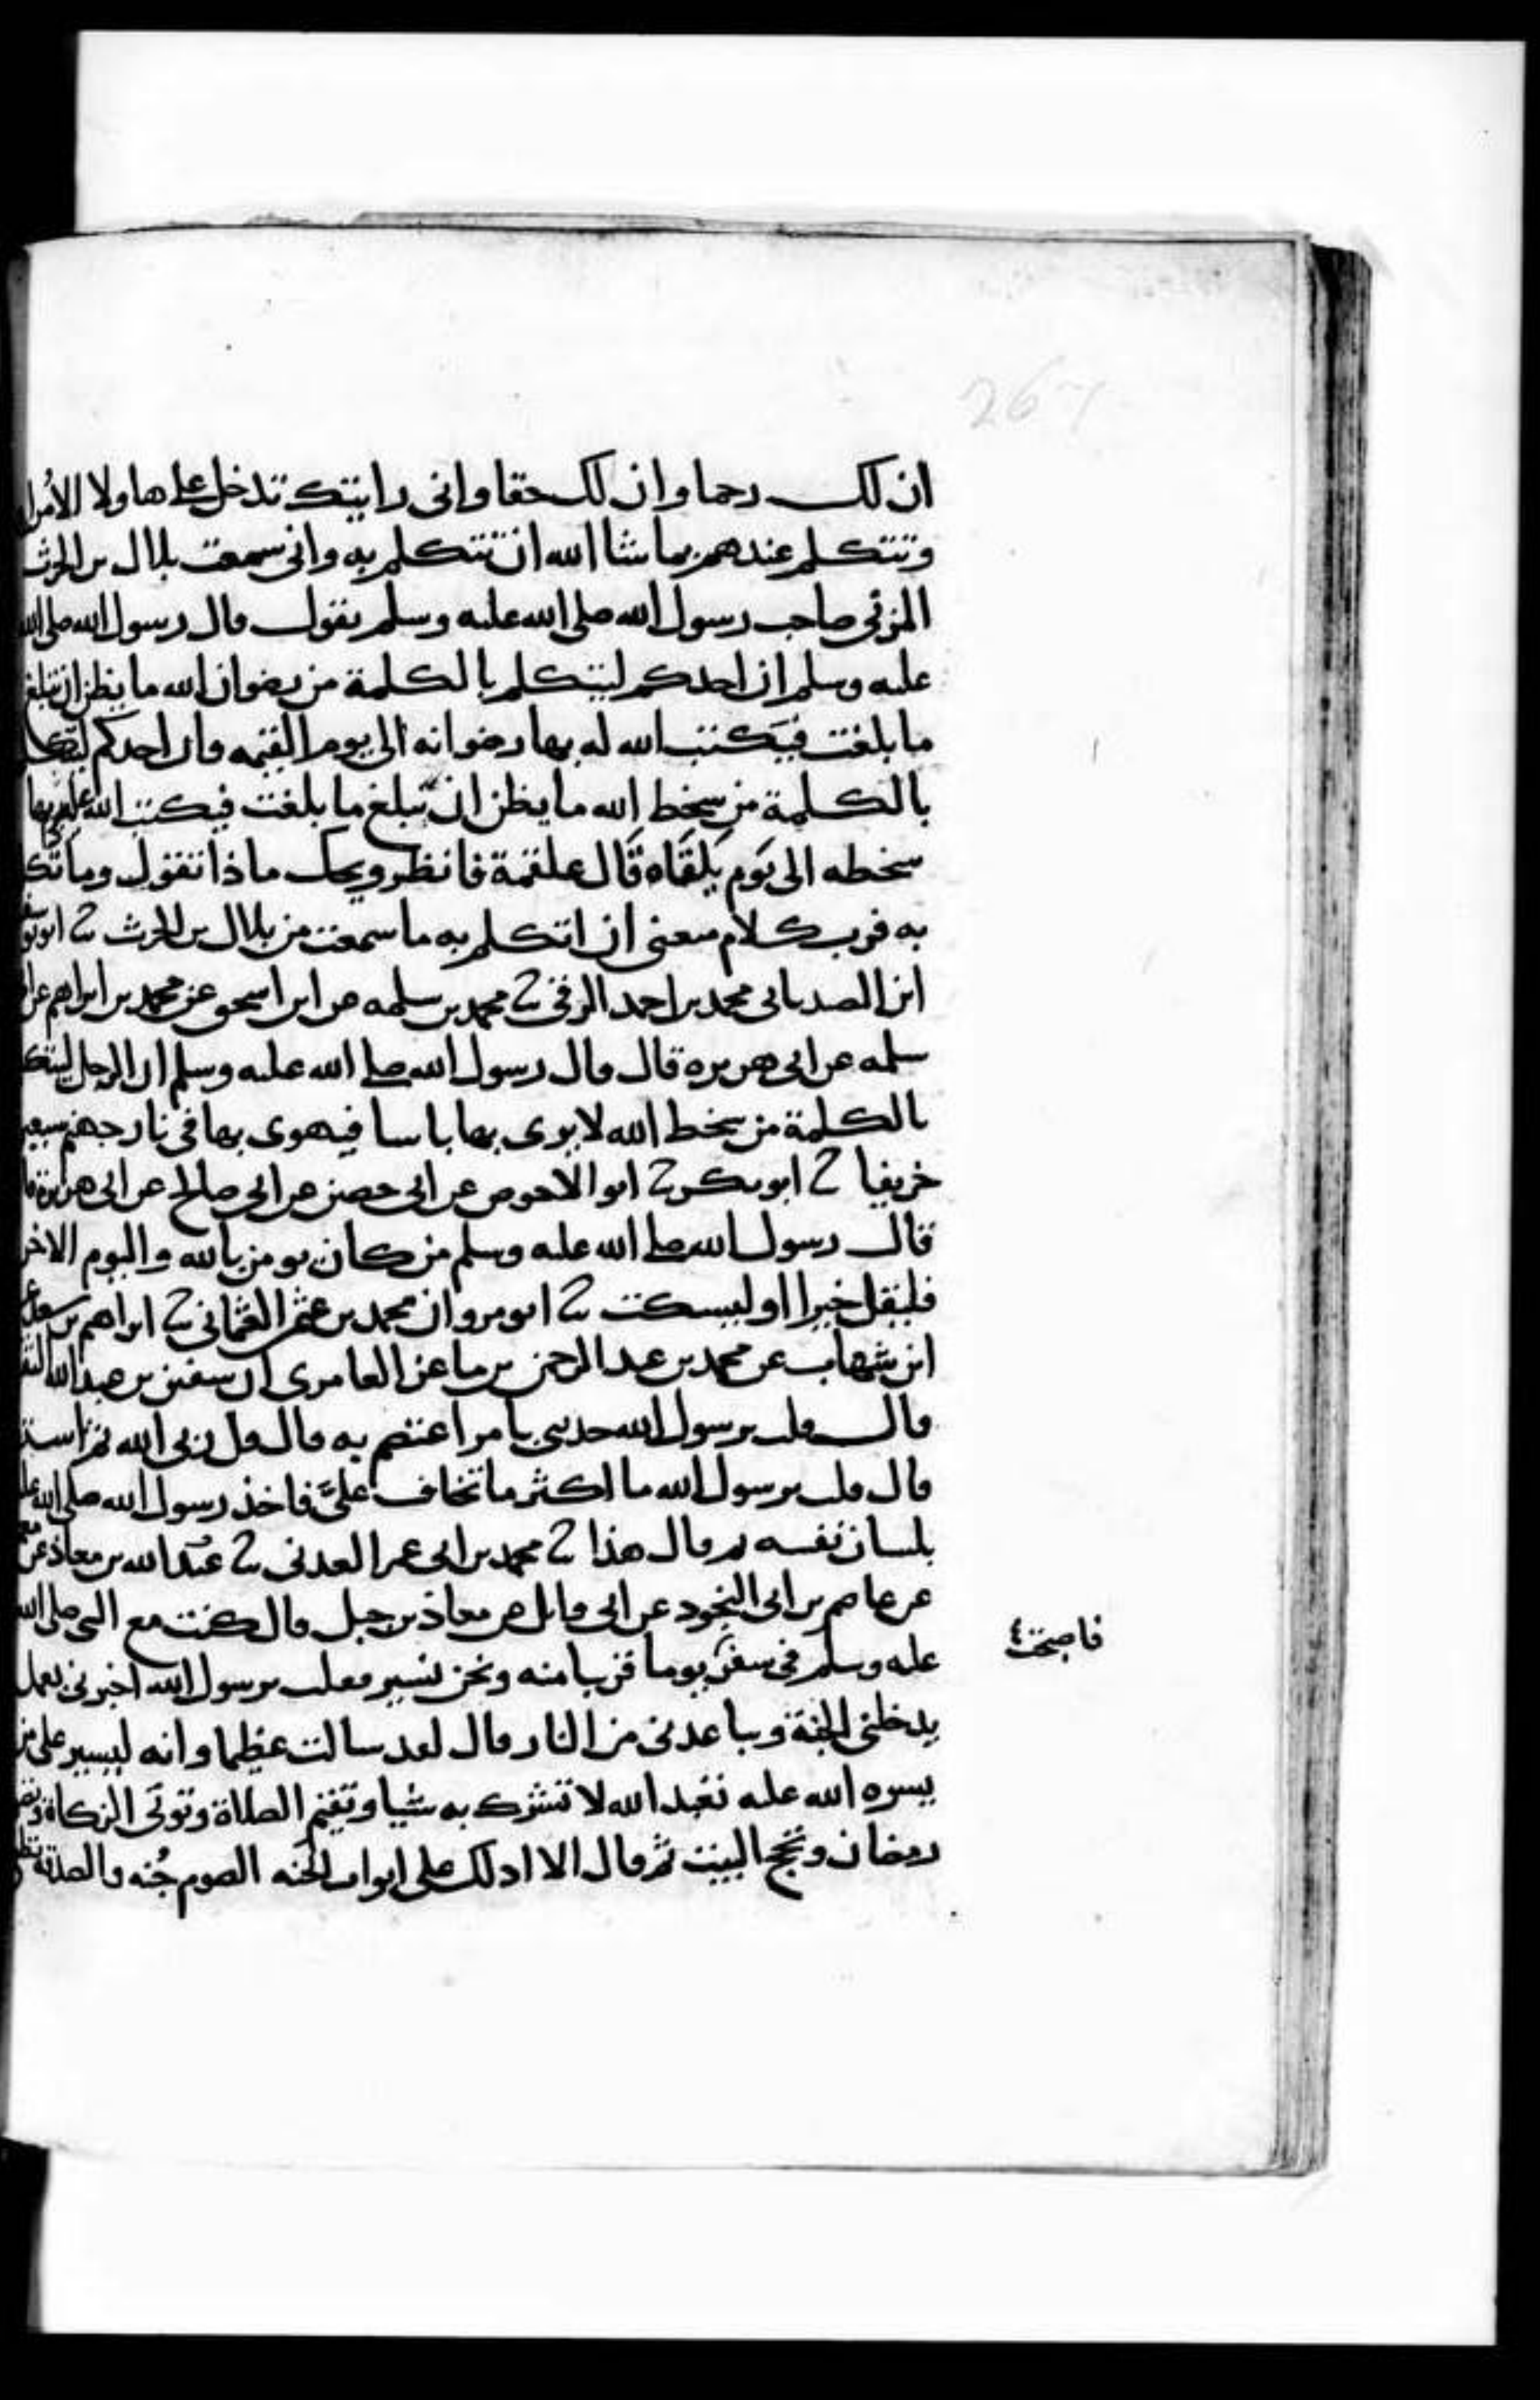 267
ان لك رحما وان لك حقا وانى رايتك تدخل على هاولا الامرا
وتتكلم عندهم بما شا الله ان تتكلم به وانى سمعت بلال بن الحرث
المزنى صاحب رسول الله صلى الله عليه وسلم يقول قال رسول الله صلى الله
عليه وسلم ان احدكم ليتكلم بالكلمة من رضوان الله ما يظن ان تبلغ
ما بلغت فيكتب الله له بها رضوانه الى يوم القيمه وان احدكم ليتكلم
بالكلمة من سخط الله ما يظن ان تبلغ ما بلغت فيكتب الله عليه بها
سخطه الى يوم يلقاه قال علقمة فانظر ويحك ماذا تقول وما تكلم
به فرب كلام منعنى ان اتكلم به ما سمعت من بلال بن الحرث ثنا ابو يوسف
ابن الصيدنانى محمد بن احمد الرقى ثنا محمد بن سلمه عن ابن اسحق عن محمد بن ابراهم عن ابى
سلمه عن ابى هريره قال قال رسول الله صلى الله عليه وسلم ان الرجل ليتكلم
بالكلمة من سخط الله لا يرى بها باسا فيهوى بها فى نار جهنم سبعين
خريفا ثنا ابو بكر ثنا ابو الاحوص عن ابى حصين عن ابى صالح عن ابى هريرة قال
قال رسول الله صلى الله عليه وسلم من كان يومن بالله واليوم الاخر
فليقل خيرا او ليسكت ثنا ابو مروان محمد بن عثمن العثمانى ثنا ابراهم بن سعد عن
ابن شهاب عن محمد بن عبد الرحمن بن ماعز العامرى ان سفين بن عبد الله الثقفى
قال قلت يرسول الله حدثنى بامر اعتصم به قال قل ربى الله ثم استقم
قال قلت يرسول الله ما اكثر ما تخاف على فاخذ رسول الله صلى الله عليه
بلسان نفسه ثم قال هذا ثنا محمد بن ابى عمر العدنى ثنا عبد الله بن معاذ عن معمر
عن عاصم بن ابى النجود عن ابى وايل عن معاذ بن جبل قال كنت مع النبى صلى الله
عليه وسلم فى سفر يوما قريبا منه ونحن نسير فقلت يرسول الله اخبرنى بعمل
فاصبحت
يدخلنى الجنة ويباعدنى من النار قال لقد سالت عظيما وانه ليسير على من
يسره الله عليه تعبد الله لا تشرك به شيا وتقيم الصلاة وتوتى الزكاة وتصوم
رمضان وتحج البيت ثم قال الا ادلك على ابواب الجنه الصوم جنه والصدقة تطفى